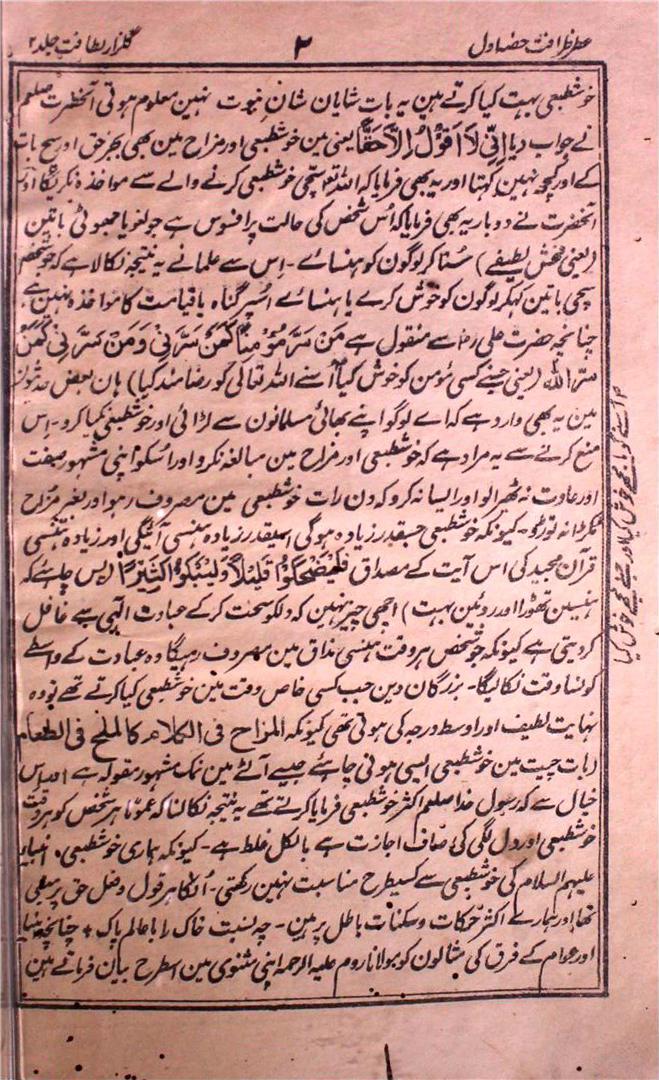 عطر ظرافت حصہ اول ۲ گلزار لطافت جلد ۲
خوشطبعی بہت کیا کرتے ہین یہ بات شایان شان نبوت نہین معلوم ہوتی آنحضرت صلعم
نے جواب دیا اِنِّی لَا اَقُوۡلُ اِلَّا حَقًّا یعنی مین خوشطبعی اور مزاح مین بھی بجز حق اور سچ بات
کے اور کچھ نہین کہتا اور یہ بھی فرمایا کہ اللہ تعالی سچی خوشطبعی کرنے والے سے مواخذہ نکریگا اور
آنحضرت نے دوبار یہ بھی فرمایا کہ اُس شخص کی حالت پر افسوس ہے جو لغو یا جھوٹی باتین
(یعنی فحش لطیفے) سُنا کر لوگون کو ہنسائے - اِس سے علما نے یہ نتیجہ نکالا ہے کہ جو شخص
سچی باتین کہکر لوگون کو خوش کرے یا ہنسائے اُسپر گناہ یا قیامت کا مواخذہ نہین ہے
چنانچہ حضرت علی رض سے منقول ہے مَنْ سَرَّ مُؤْمِنًا کَمَنْ سَرَّنِیْ وَمَنْ سَرَّنِیْ کَمَنْ
سَرَّ اللّٰہَ (یعنی جسنے کسی مومن کو خوش کیا اُسنے اللہ تعالی کو رضامند کیا) ہان بعض حدیثون
مین یہ بھی وارد ہے کہ اے لوگو اپنے بھائی مسلمانون سے لڑائی اور خوشطبعی نکیا کرو - اِس
منع کرنے سے یہ مراد ہے کہ خوشطبعی اور مزاح مین مبالغہ نکرو اور اُسکو اپنی مشہور صفت
اور عادت نہ ٹھیرالو اور ایسا نہ کرو کہ دن رات خوشطبعی مین مصروف رہو اور بغیر مزاح
ٹکڑا نہ توڑو - کیونکہ خوشطبعی جسقدر زیادہ ہوگی اسیقدر زیادہ ہنسی آئیگی اور زیادہ ہنسی
قرآن مجید کی اس آیت کے مصداق فَلْیَضْحَکُوْا قَلِیْلاً وَّلْیَبْکُوْا کَثِیْرًا (پس چاہئے کہ
ہنسین تھوڑا اور روئین بہت) اچھی چیز نہین کہ دلکو سخت کرکے عبادت الٰہی سے غافل
کر دیتی ہے کیونکہ جو شخص ہر وقت ہنسی مذاق مین مصروف رہیگا وہ عبادت کے واسطے
کونسا وقت نکالیگا - بزرگان دین جب کسی خاص وقت مین خوشطبعی کیا کرتے تھے تو وہ
نہایت لطیف اور اوسط درجہ کی ہوتی تھی کیونکہ المزاح فی الکلام کالملح فی الطعام
(بات چیت مین خوشطبعی ایسی ہونی چاہئے جیسے آٹے مین نمک مشہور مقولہ ہے اور اس
خیال سے کہ رسول خدا صلعم اکثر خوشطبعی فرمایا کرتے تھے یہ نتیجہ نکالنا کہ عموماً ہر شخص کو ہر وقت
خوشطبعی اور دل لگی کی صاف اجازت ہے بالکل غلط ہے - کیونکہ ہماری خوشطبعی انبیا
علیہم السلام کی خوشطبعی سے کسیطرح مناسبت نہین رکھتی - اُنکا ہر قول و فعل حق پر مبنی
تھا اور ہمارے اکثر حرکات و سکنات باطل پر ہین - چہ نسبت خاک را با عالم پاک + چنانچہ انبیا
اور عوام کے فرق کی مثالون کو مولانا روم علیہ الرحمہ اپنی مثنوی مین اسطرح بیان فرماتے ہین
اُسنے گویا مجھے خوش کیا اور جسنے مجھے خوش کیا